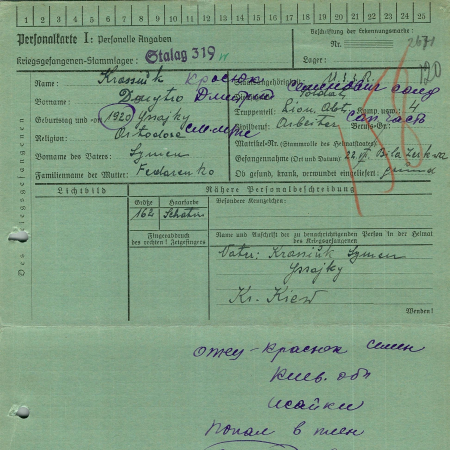 1 2 3 4 5 6 7 8 9 10 11 12 13 14 15 16 17 18 19 20 21 22 23 24 25
Personalkarte I: Personelle Angaben
Beschriftung der Erkennungsmarke
Kriegsgefangenen-Stammlager: Stalag 319
Nr. 2671
Lager: 120
Des Kriegsgefangenen
Name: Krassiuk Красюк
Staatsangehörigkeit: U.d.S.R.
Vorname: Dmytro Дмитрий Семенович солд
Dienstgrad: Soldat
Geburtstag und -ort 1920 Yssajky
Truppenteil: Komp. usw.: 4
Religion: Ortodox
Zivilberuf: Arbeiter Berufs-Gr.:
Matrikel Nr. (Stammrolle des Heimatstaates)
Vorname des Vaters: Symen
Gefangennahme (Ort und Datum) 22. VII. Bila Zerkwa
Familienname der Mutter: Fedorenko
Ob gesund, krank, verwundet eingeliefert: gesund
158
Lichtbild
Nähere Personalbeschreibung
Größe
Haarfarbe
Besondere Kennzeichen:
164
Fingerabdruck
des rechten! Zeigefingers
Name und Anschrift der zu benachrichtigenden Person in der Heimat
des Kriegsgefangenen
Vater: Krassiuk Symen
Yssajky
Kr. Kiew
Wenden!
отец - Красюк Семен
Киев. обл
Исайки
попал в плен